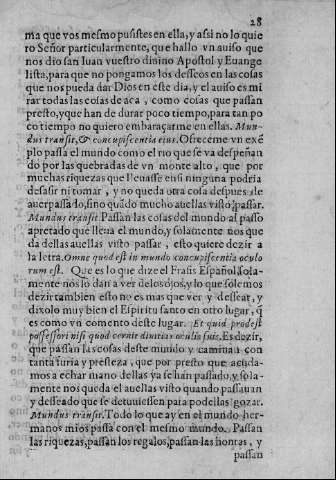 28
ma que vos mesmo pusistes en ella, y assi no lo quie
ro Señor particularmente, que hallo vn auiso que
nos dio san Iuan vuestro diuino Apostol y Euange
lista, para que no pongamos los desseos en las cosas
que nos pueda dar Dios en este dia, y el auiso es mi
rar todas las cosas de aca, como cosas que passan
presto, y que han de durar poco tiempo, para tan po
co tiempo no quiero embaraçarme en ellas. Mun-
dus transit, & concupiscentia eius. Ofreceme vn exẽ
plo passa el mundo como el rio que se va despeñan
do por las quebradas de vn monte alto, que por
muchas riquezas que lleuasse en si ninguna podria
desasir ni tomar, y no queda otra cosa despues de
auer passado, sino quãdo mucho auellas visto passar.
Mundus transit Passan las cosas del mundo al passo
apretado que lleua el mundo, y solamente nos que
da dellas auellas visto passar, esto quiere dezir a
la letra. Omne quod est in mundo concupiscentia oculo
rum est. Que es lo que dize el Frasis Español, sola-
mente nos lo dan a ver de los ojos, y lo que solemos
dezir tambien esto no es mas que ver y dessear, y
dixolo muy bien el Espiritu santo en otro lugar, q̃
es como vn comento deste lugar. Et quid prodest
possessori nisi quod cernit diuitias oculis suis. Es dezir,
que passan las cosas deste mundo y caminan con
tanta furia y presteza, que por presto que acuda-
mos a echar mano dellas ya se han passado, y sola-
mente nos queda el auellas visto quando passauan
y desseado que se detuuiessen para podellas gozar.
Mundus transit. Todo lo que ay en el mundo her-
manos mios passa con el mesmo mundo. Passan
las riquezas, passan los regalos, passan las honras, y
passan